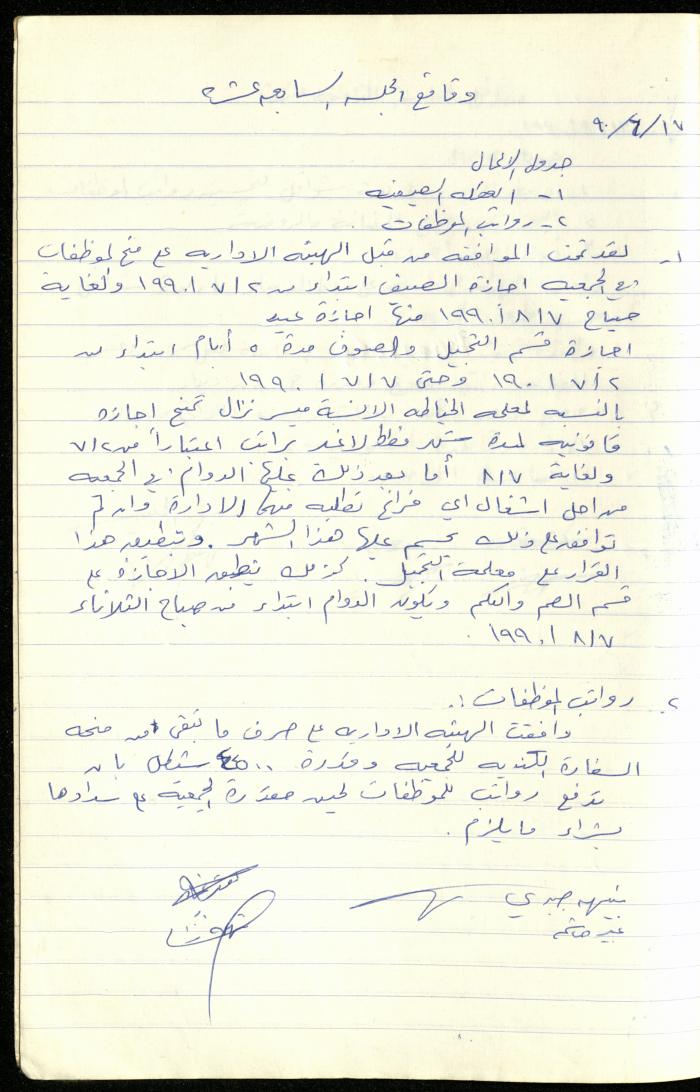 وقائع الجلسة السابعة عشرة
٩٠/٦/١٧
جدول الاعمال
١- العطلة الصيفية
٢- رواتب الموظفات
١- لقد تمت الموافقة من قبل الهيئة الادارية على منح الموظفات
في الجمعية اجازة الصيف ابتداء من ١٩٩٠/٧/٢ ولغاية
صباح ١٩٩٠/٨/٧ منها اجازة عيد
اجازة قسم التجميل والصوف مدة ٥ أيام ابتداء من
١٩٠/٧/٢ وحتى ١٩٩٠/٧/٧
بالنسبة لمعلمة الخياطة الانسة ميسر نزال تمنح اجازة
قانونية لمدة شهر فقط لاغير براتب اعتباراً من ٧/٢
ولغاية ٨/٧ أما بعد ذلك عليها الدوام في الجمعية
من اجل اشغال اي فراغ تطلبه منها الادارة وان لم
توافق على ذلك يحسم عليها هذا الشهر. وتطبيق هذا
القرار على معلمة التجميل. كذلك تطبق الاجازة على
قسم الصم والبكم ويكون الدوام ابتداء من صباح الثلاثاء
١٩٩٠/٨/٧.
٢. رواتب الموظفات:
وافقت الهيئة الادارية على صرف ما تبقى من منحة
السفارة الكندية للجمعية ومقدرة شيكل بان
تدفع رواتب للموظفات لحين مقدرة الجمعية على سدادها
بشراء ما يلزم.